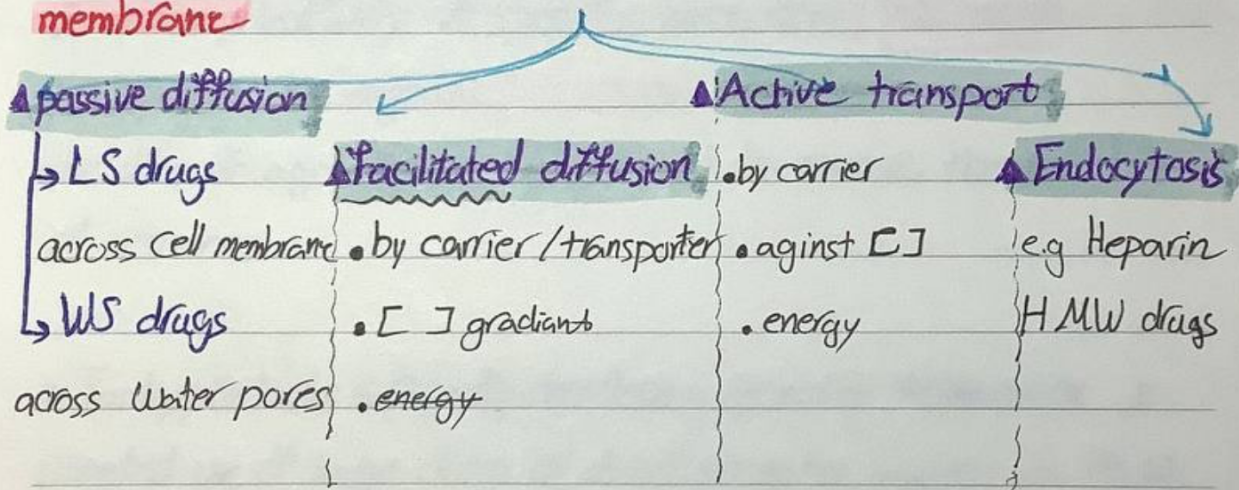 membrane
passive diffusion
LS drugs
across cell membrane
WS drugs
across water pores
Facilitated diffusion
• by carrier/transporter
• [ ] gradiant
• energy
Active transport
• by carrier
• aginst [ ]
• energy
Endocytosis
e.g Heparin
HMW drugs